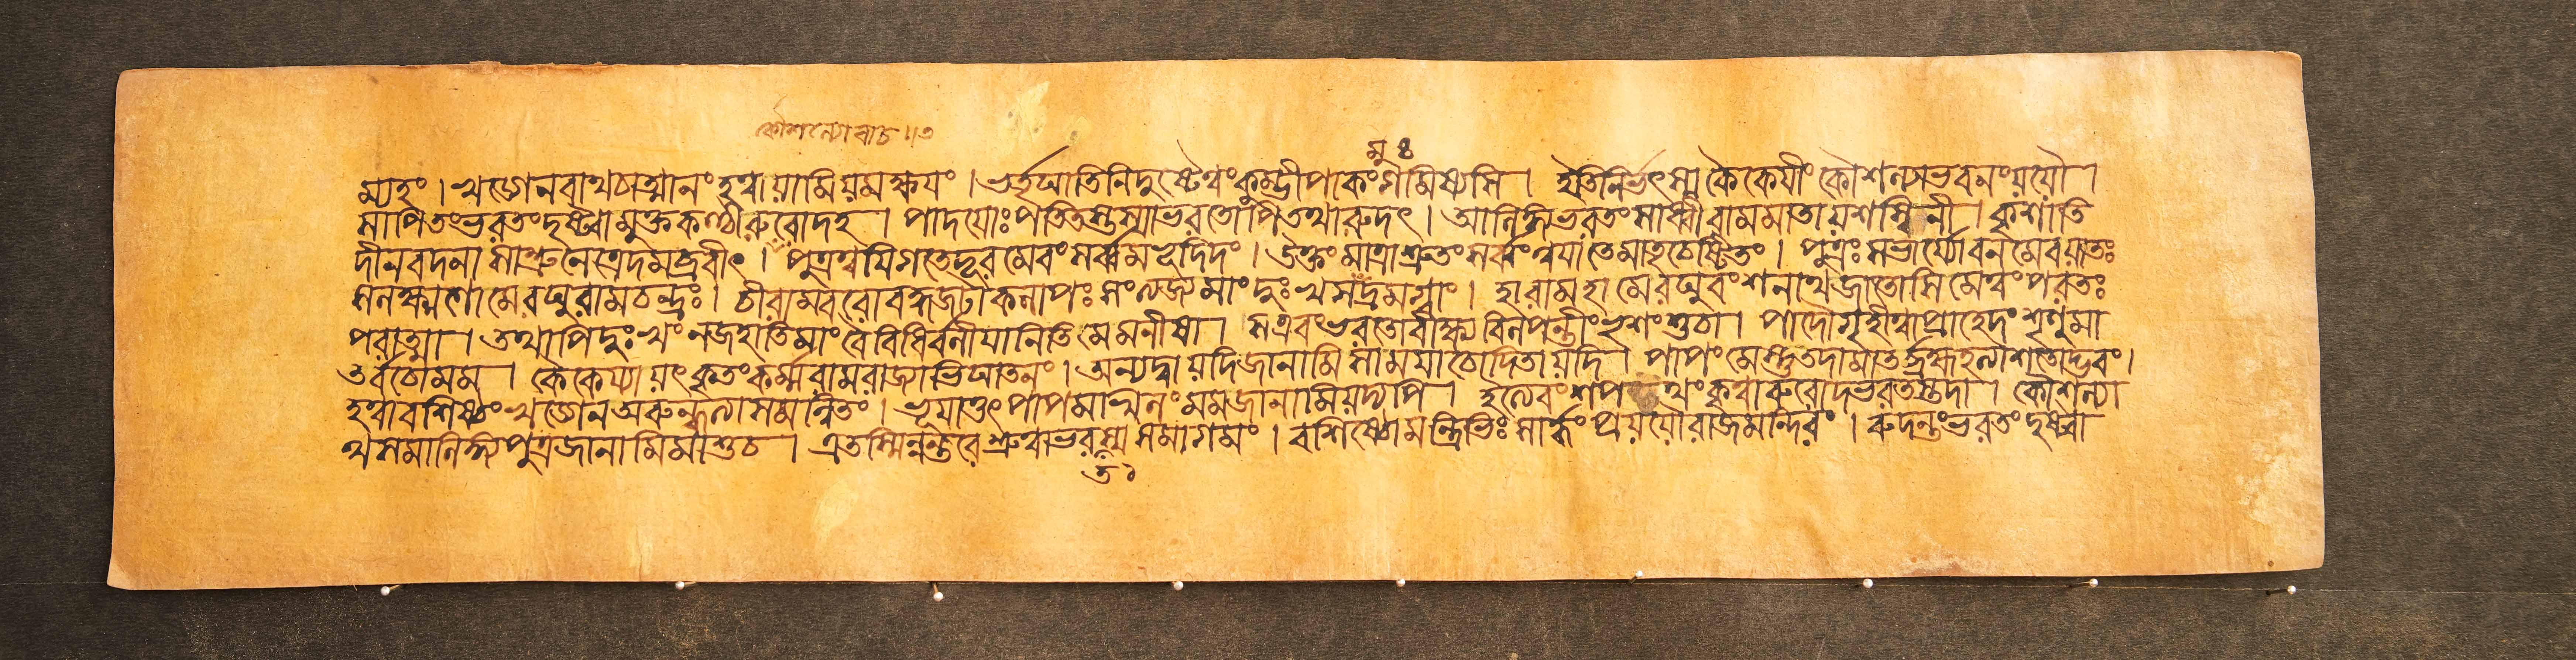 কৌশল্যোবাচ॥৩
ম্যহং। খড্গেনবাথচাত্মানংহত্বাযামিয়মক্ষযং। ভর্তৃঘাতিনিদুষ্টেত্বংকুম্ভীপাকংগমিষ্যসি। ইতিনির্ভৎস্যকৈকেযীংকৌশল্যাভবনংয়যৌ।
সাপিতংভরতংদৃষ্ট্বামুক্তকণ্ঠীরুরোদহ। পাদযোঃপতিতস্তস্যাভরতোপিতথারুদৎ। আলিঙ্গ্যিভরতংসাধ্বীরামমাতায়শস্বিনী। কৃশাতি
দীনবদনাসাশ্রুনেত্রেদমব্রবীৎ। পুত্রত্বযিগতেদূরমেবংসর্ব্বমভূদিদং। উক্তংমাত্রাশ্রুতংসর্ব্বংত্বযাতেমাতৃচেষ্টিতং। পুত্রঃসভার্য্যোবনমেবয়াতঃ
সলক্ষ্মণোমেরঘুরামচন্দ্রঃ। চীরাম্বরোবদ্ধজটাকলাপঃসংত্যজ্যমাংদুঃখসমুদ্রমগ্নাং। হারামহামেরঘুবংশনাথজাতোসিমেত্বংপরতঃ
পরাত্মা। তথাপিদুঃখংনজহাতিমাংবৈবিধির্বলীযানিতিমেমনীষা। সএবংভরতোবীক্ষ্যবিলপন্তীংভৃশংশুচা। পাদৌগৃহীত্বাপ্রাহেদংশৃণুমা
তর্বচোমম। কৈকেয্যায়ৎকৃতংকর্ম্মরামরাজ্যাভিঘাতনং। অন্যদ্বায়দিজানামিসামযাচোদিতায়দি। পাপংমেস্তুতদামাতর্ব্রহ্মহত্যাশতোদ্ভবং।
হত্বাবশিষ্ঠংখড্গেনঅরুন্ধত্যাসমন্বিতং। ভূযাত্তৎপাপমাত্মনংমমজানামিয়দ্যপি। ইত্যেবংশপথংকৃত্বারুরোদভরতস্তদা। কৌশল্যা
থসমালিঙ্গ্যপুত্রজানামিমাশুচ। এতস্মিন্নন্তরেশ্রুত্বাভরস্যসমাগমং। বশিষ্ঠোমন্ত্রিভিঃসার্দ্ধংপ্রয়যৌরাজমন্দিরং। রুদন্তংভরতংদৃষ্ট্বা
ত১